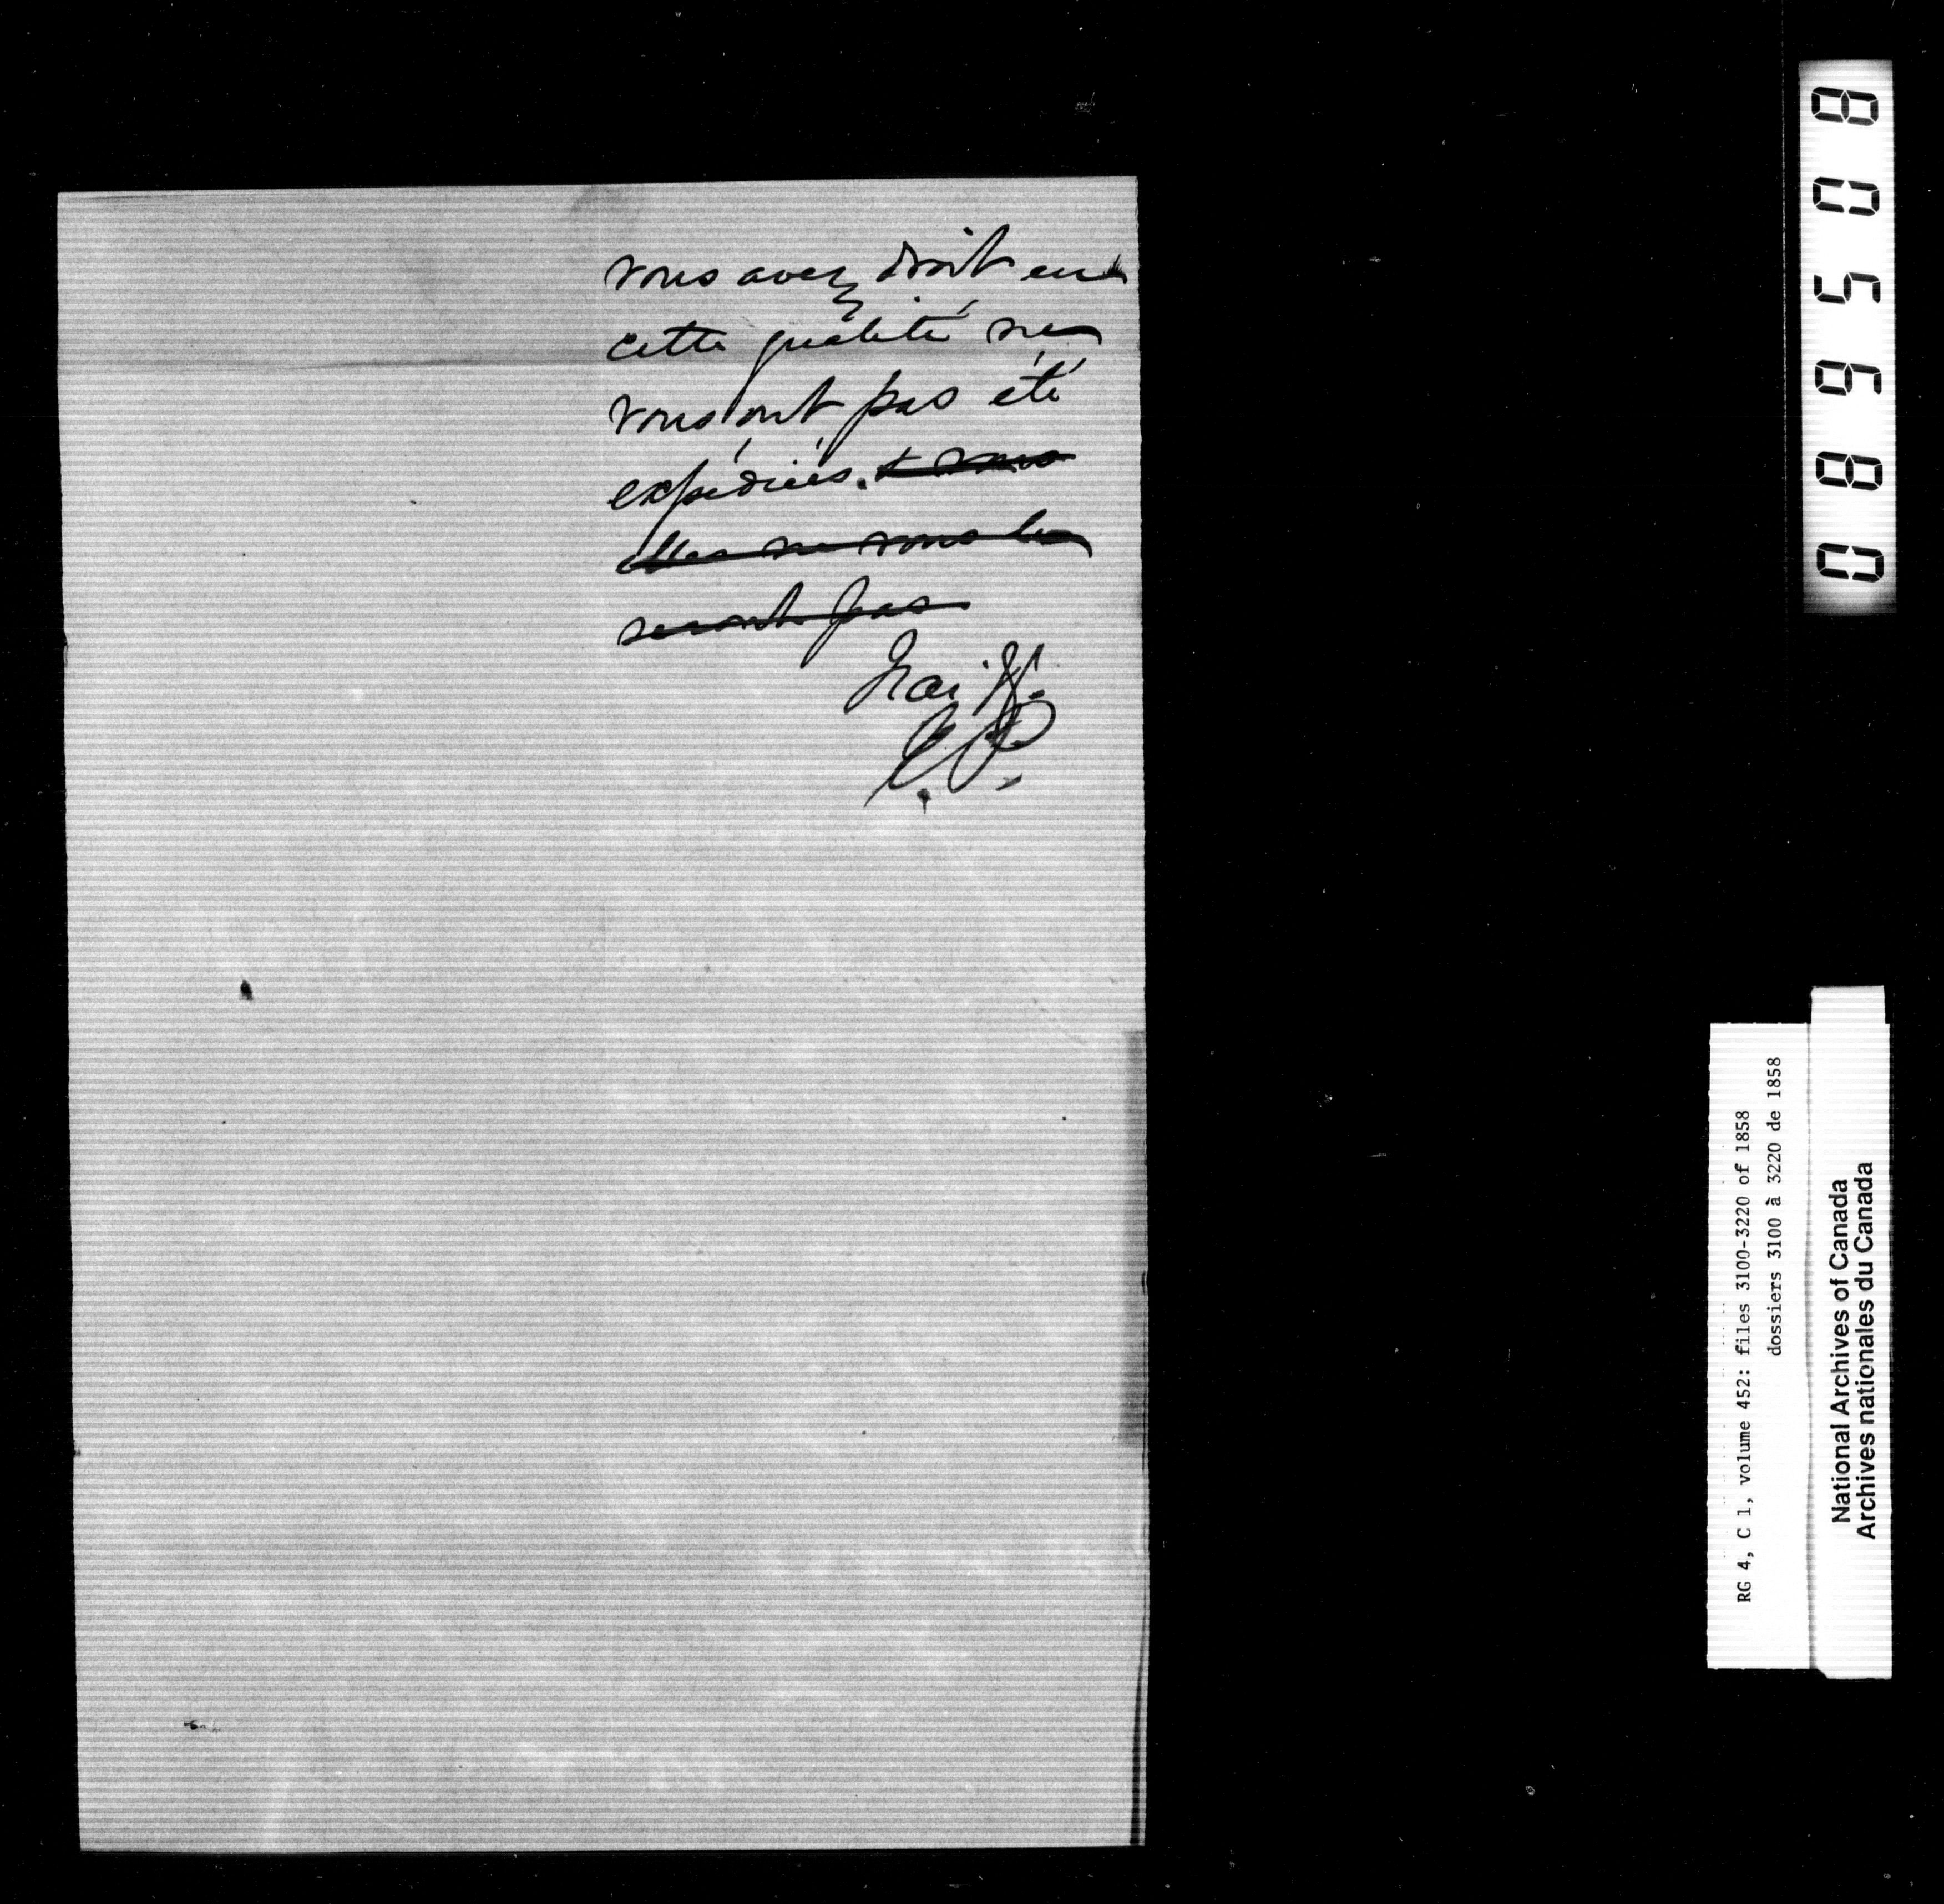 vous avez droit en
cette qualité ne
vous ont pas été
expédiées. et vous
elles ne vous les
seront pas
J'ai &.
E. P.
089508
RG 4, C 1, volume 452: files 3100-3220 of 1858
dossiers 3100 à 3220 de 1858
National Archives of Canada
Archives nationales du Canada